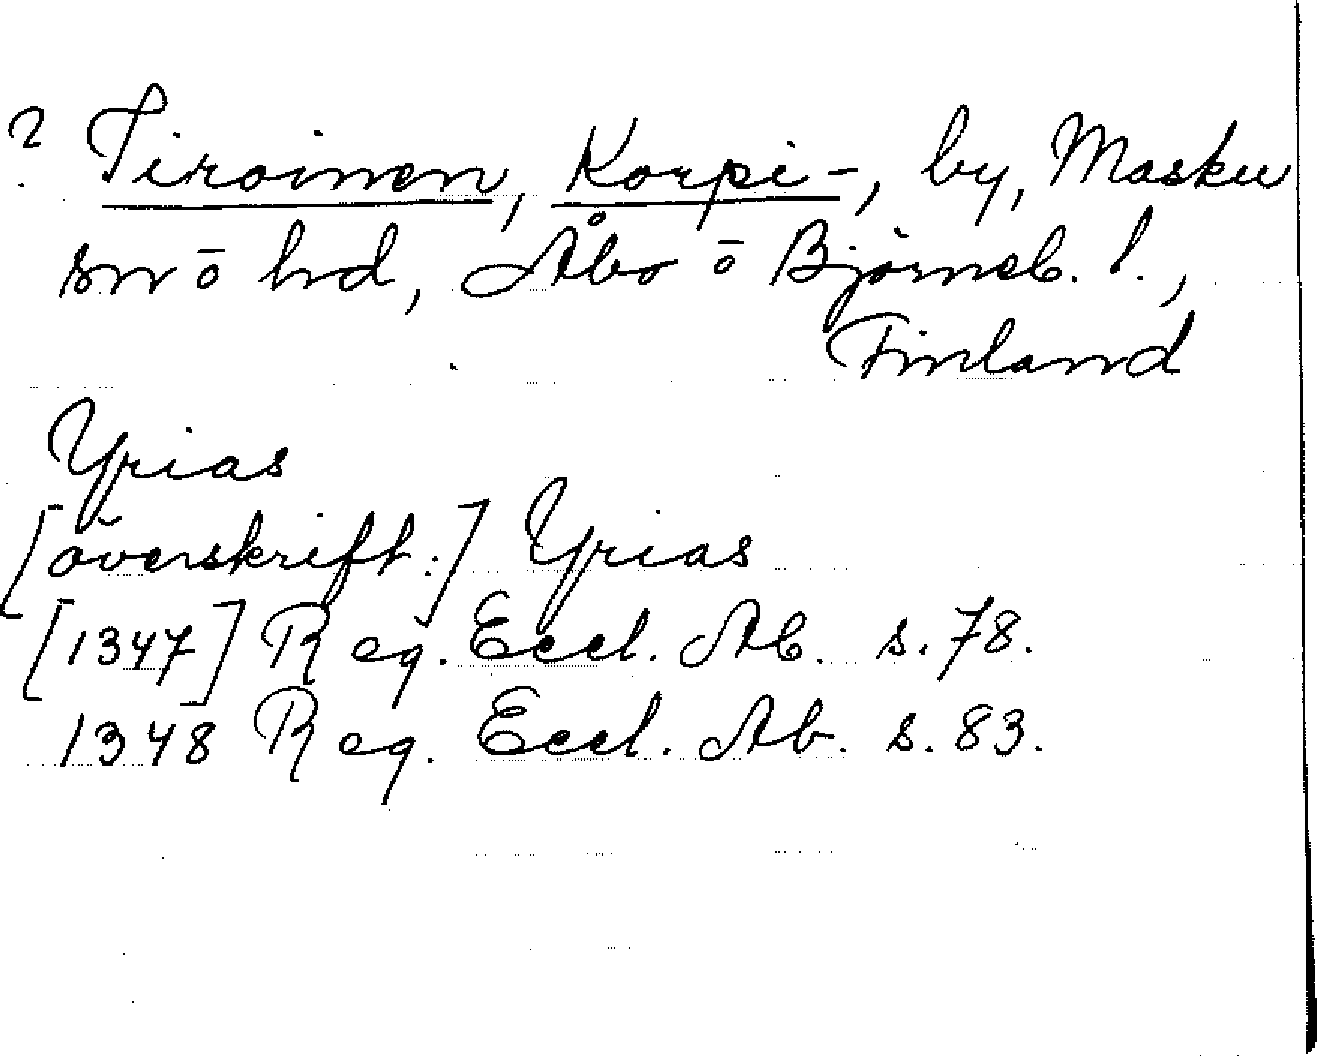 ? Tiroinen, Korpi-, by, Masku
sn ō hd, Åbo ō Björneb. l.,
Finland
Yrias
[överskrift:] Yrias
[1347] Reg. Eccl. Ab. s. 78.
1348 Reg. Eccl. Ab. s. 83.